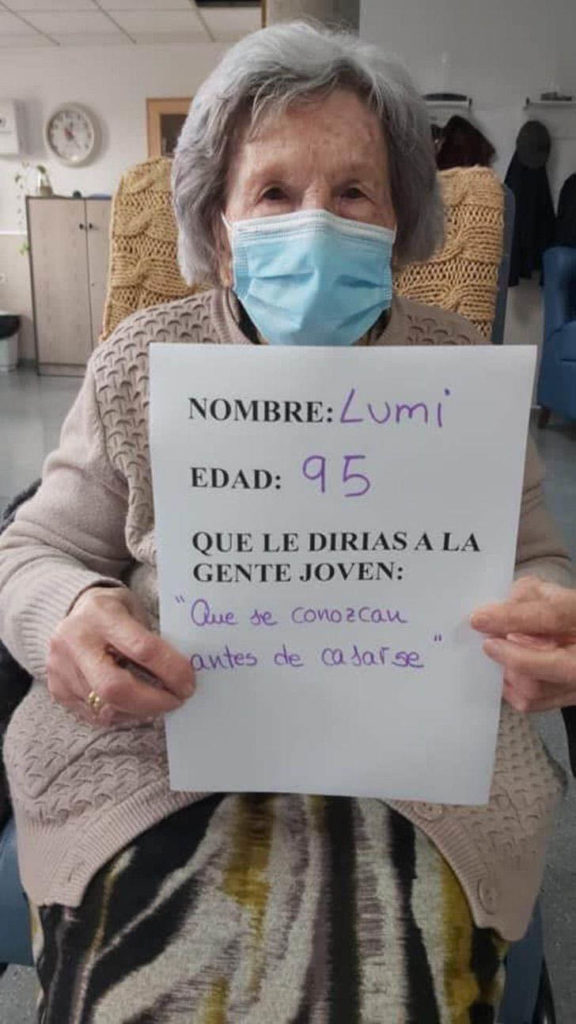 NOMBRE: Lumi
EDAD: 95
QUE LE DIRIAS A LA
GENTE JOVEN:
"Que se conozcan
antes de casarse"